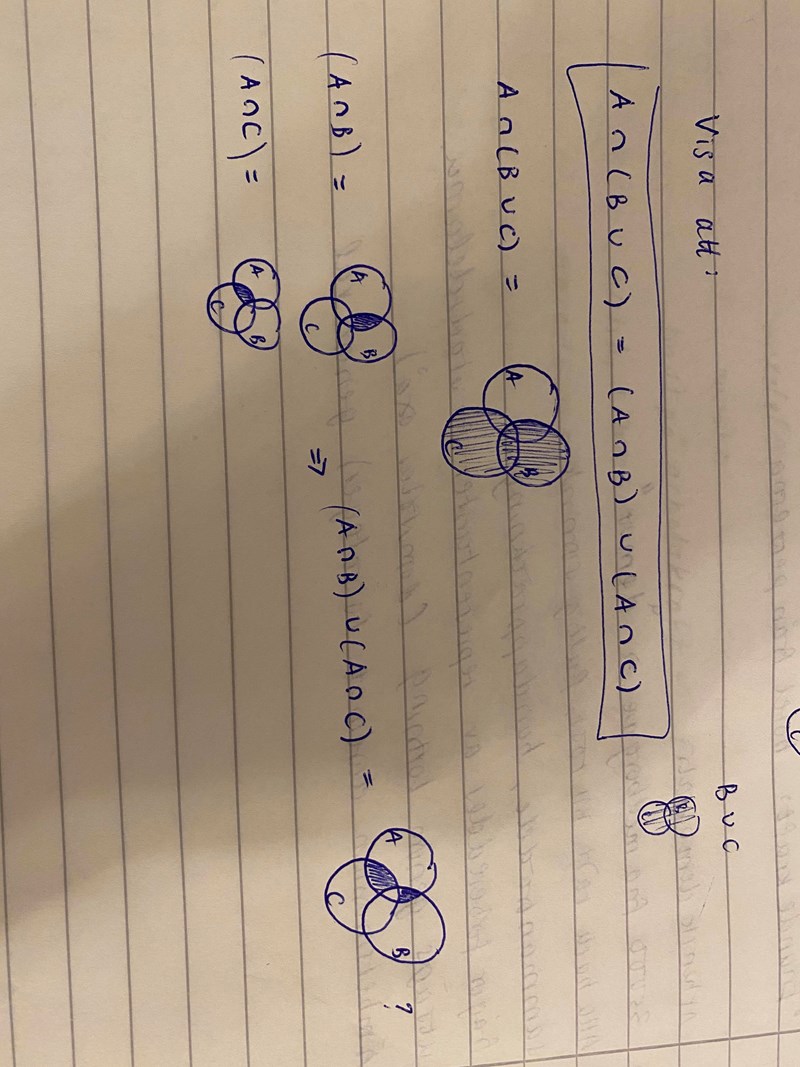 Visa att:
B ∪ C
B
C
A ∩ (B ∪ C) = (A ∩ B) ∪ (A ∩ C)
A ∩ (B ∪ C) =
A
B
C
(A ∩ B) =
A
B
C
⇒ (A ∩ B) ∪ (A ∩ C) =
A
B
C
?
(A ∩ C) =
A
B
C